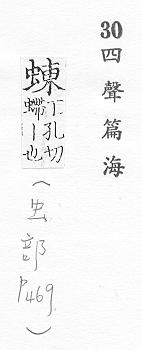 30四聲篇海
蝀丁孔切
螮丨也
(虫部
P469.)